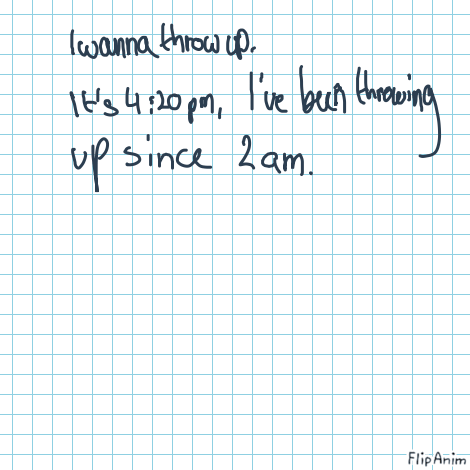 I wanna throw up.
It's 4:20pm, I've been throwing
up since 2am.
FlipAnim